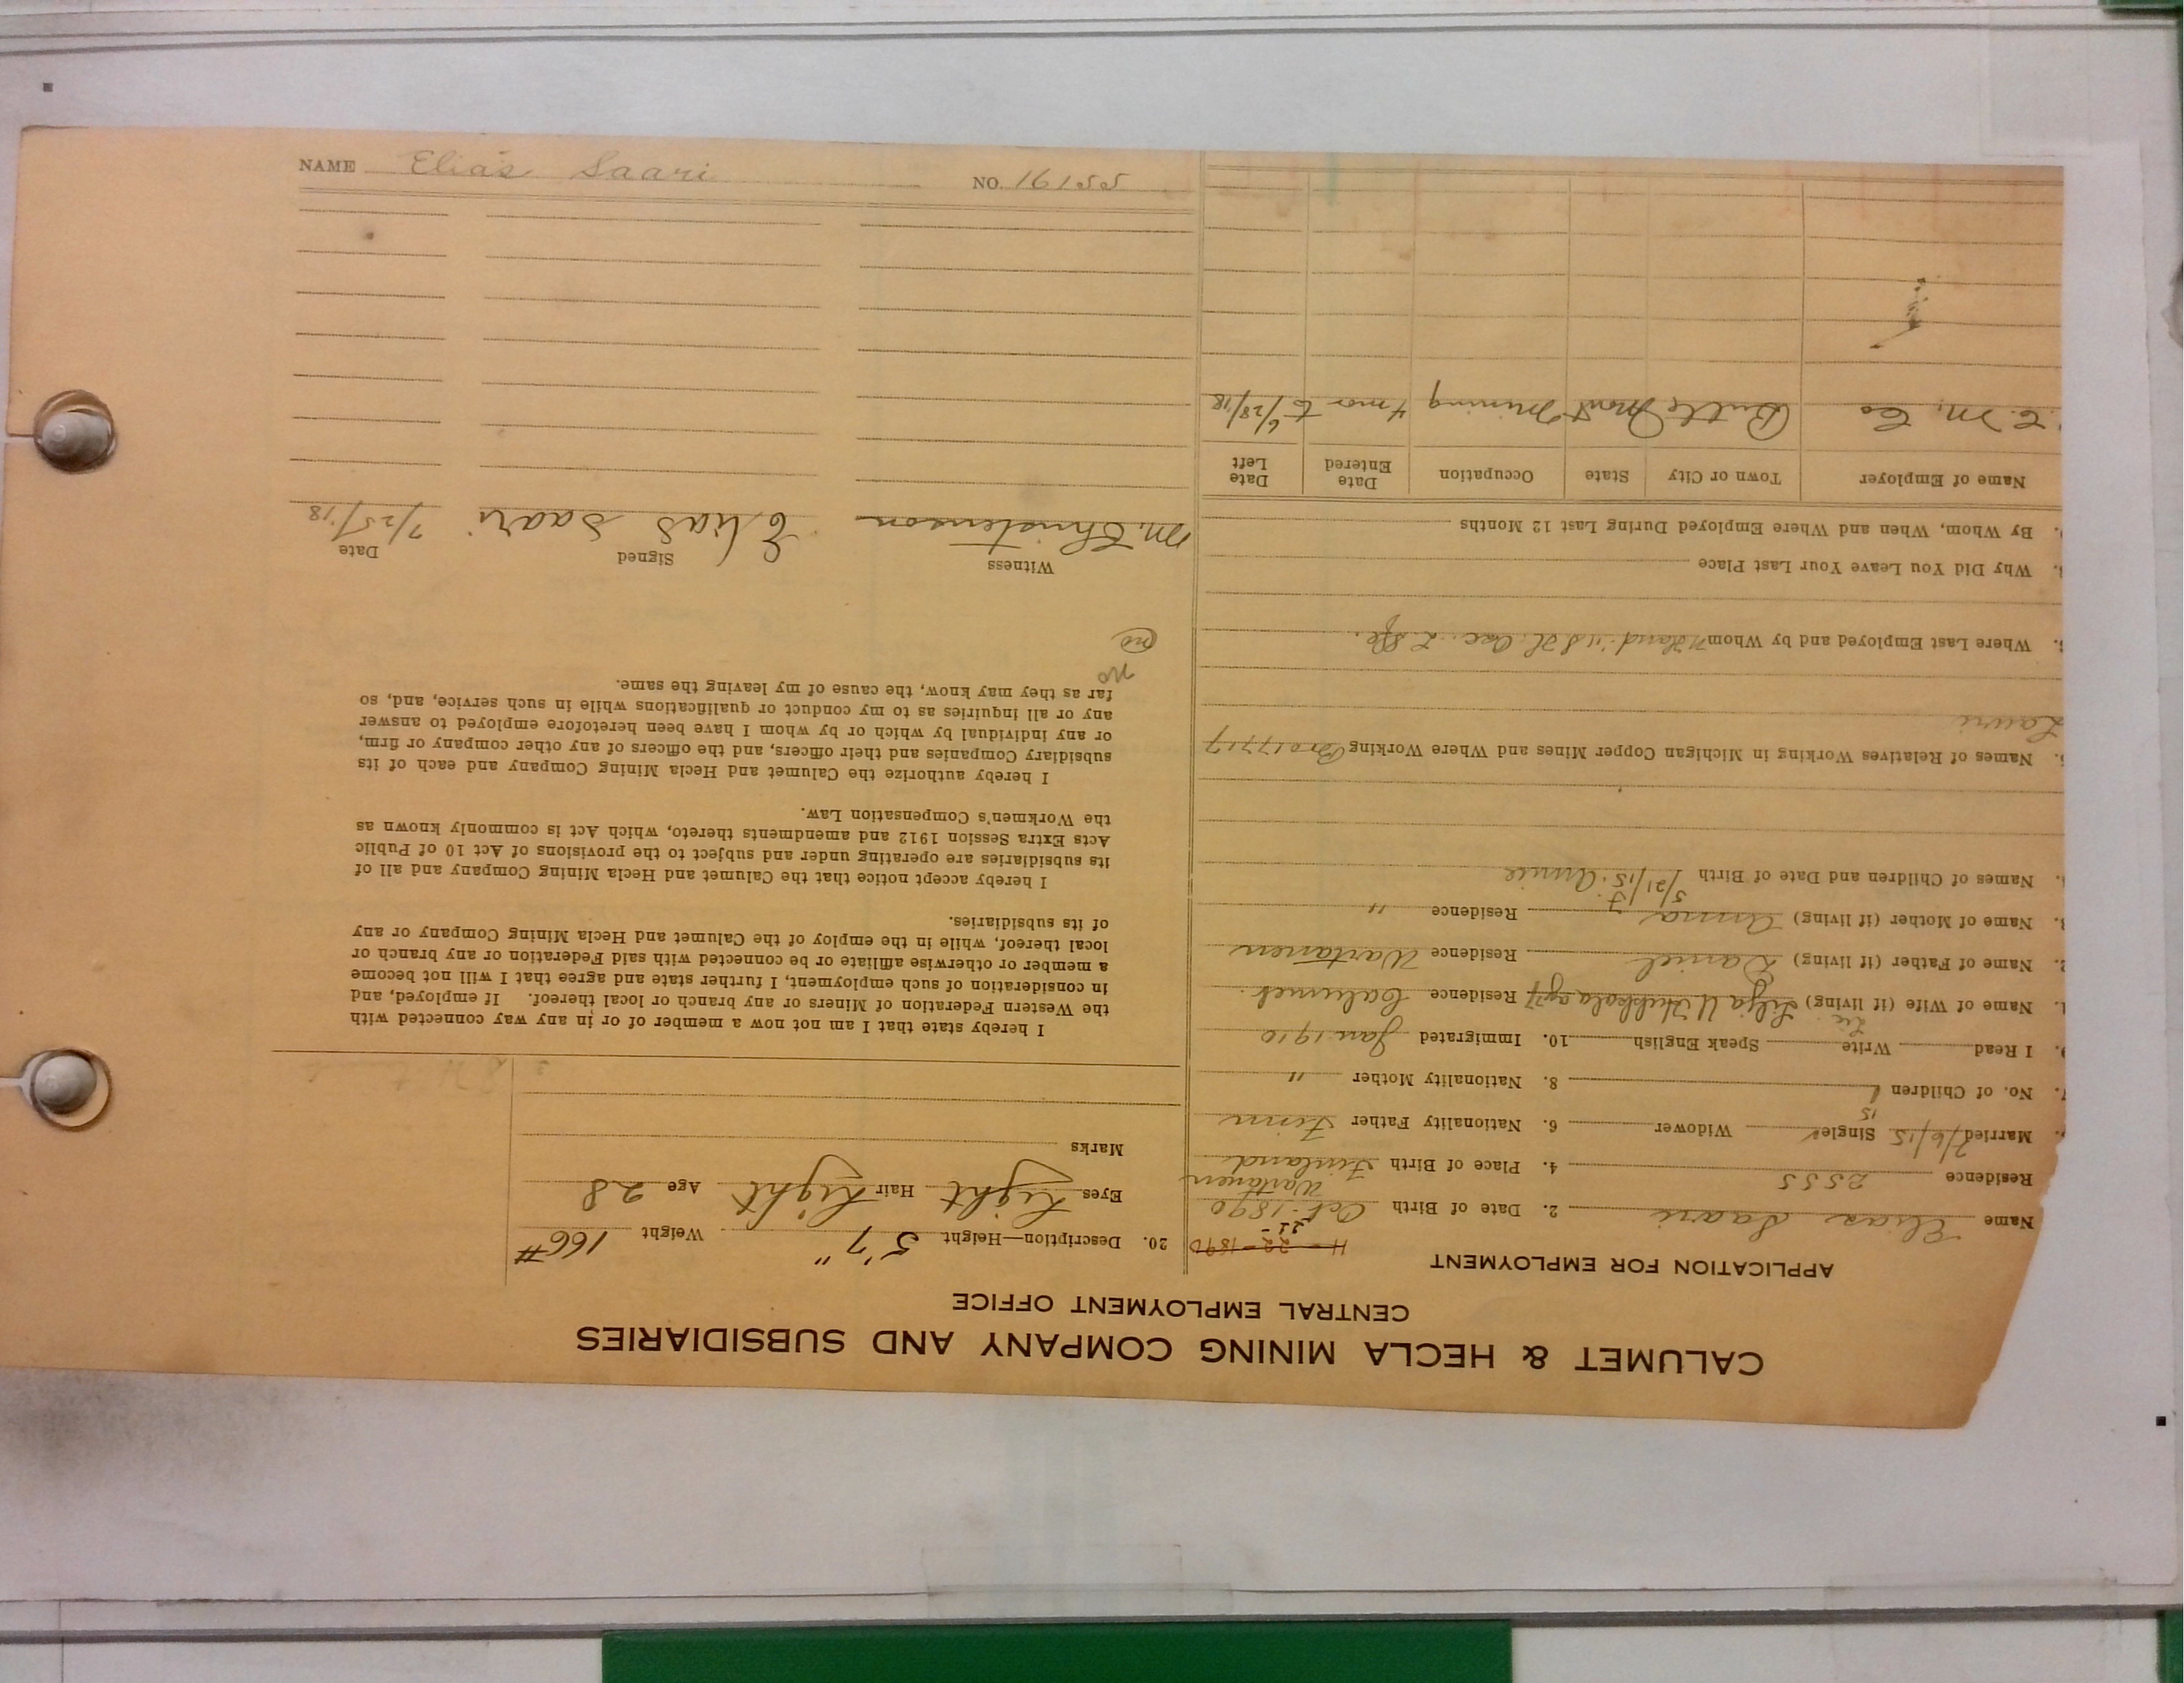 CALUMET & HECLA MINING COMPANY AND SUBSIDIARIES
CENTRAL EMPLOYMENT OFFICE
APPLICATION FOR EMPLOYMENT
11-22-1890
Name Elias Saari 2. Date of Birth Oct. 1890
Residence 2555 4. Place of Birth Finland Wartanen
Married 7/6/15 Single Widower 6. Nationality Father Finn
15
7. No. of Children 1 8. Nationality Mother "
9. I Read Write Speak English 10. Immigrated Jan 1910
1. Name of Wife (if living) Lilja Residence Calumet.
2. Name of Father (if living) Daniel Residence Wartanen
3. Name of Mother (if living) Anna Residence "
4. Names of Children and Date of Birth 5/21/15. Annie
5. Names of Relatives Working in Michigan Copper Mines and Where Working Bro 17717
Lauri
Where Last Employed and by Whom
Why Did You Leave Your Last Place
By Whom, When and Where Employed During Last 12 Months
Name of Employer Town or City State Occupation Date Entered Date Left
E. M. Co Butte Mont Mining 4 mos to 6/28/18
20. Description—Height 5'7" Weight 166#
Eyes Light Hair Light Age 28
Marks
I hereby state that I am not now a member of or in any way connected with
the Western Federation of Miners or any branch or local thereof. If employed, and
in consideration of such employment, I further state and agree that I will not become
a member or otherwise affiliate or be connected with said Federation or any branch or
local thereof, while in the employ of the Calumet and Hecla Mining Company or any
of its subsidiaries.
I hereby accept notice that the Calumet and Hecla Mining Company and all of
its subsidiaries are operating under and subject to the provisions of Act 10 of Public
Acts Extra Session 1912 and amendments thereto, which Act is commonly known as
the Workmen's Compensation Law.
I hereby authorize the Calumet and Hecla Mining Company and each of its
subsidiary Companies and their officers, and the officers of any other company or firm,
or any individual by which or by whom I have been heretofore employed to answer
any or all inquiries as to my conduct or qualifications while in such service, and, so
far as they may know, the cause of my leaving the same.
no
no
Witness Signed Date
M. Christenson Elias Saari 7/25/18
NAME Elias Saari NO. 16155